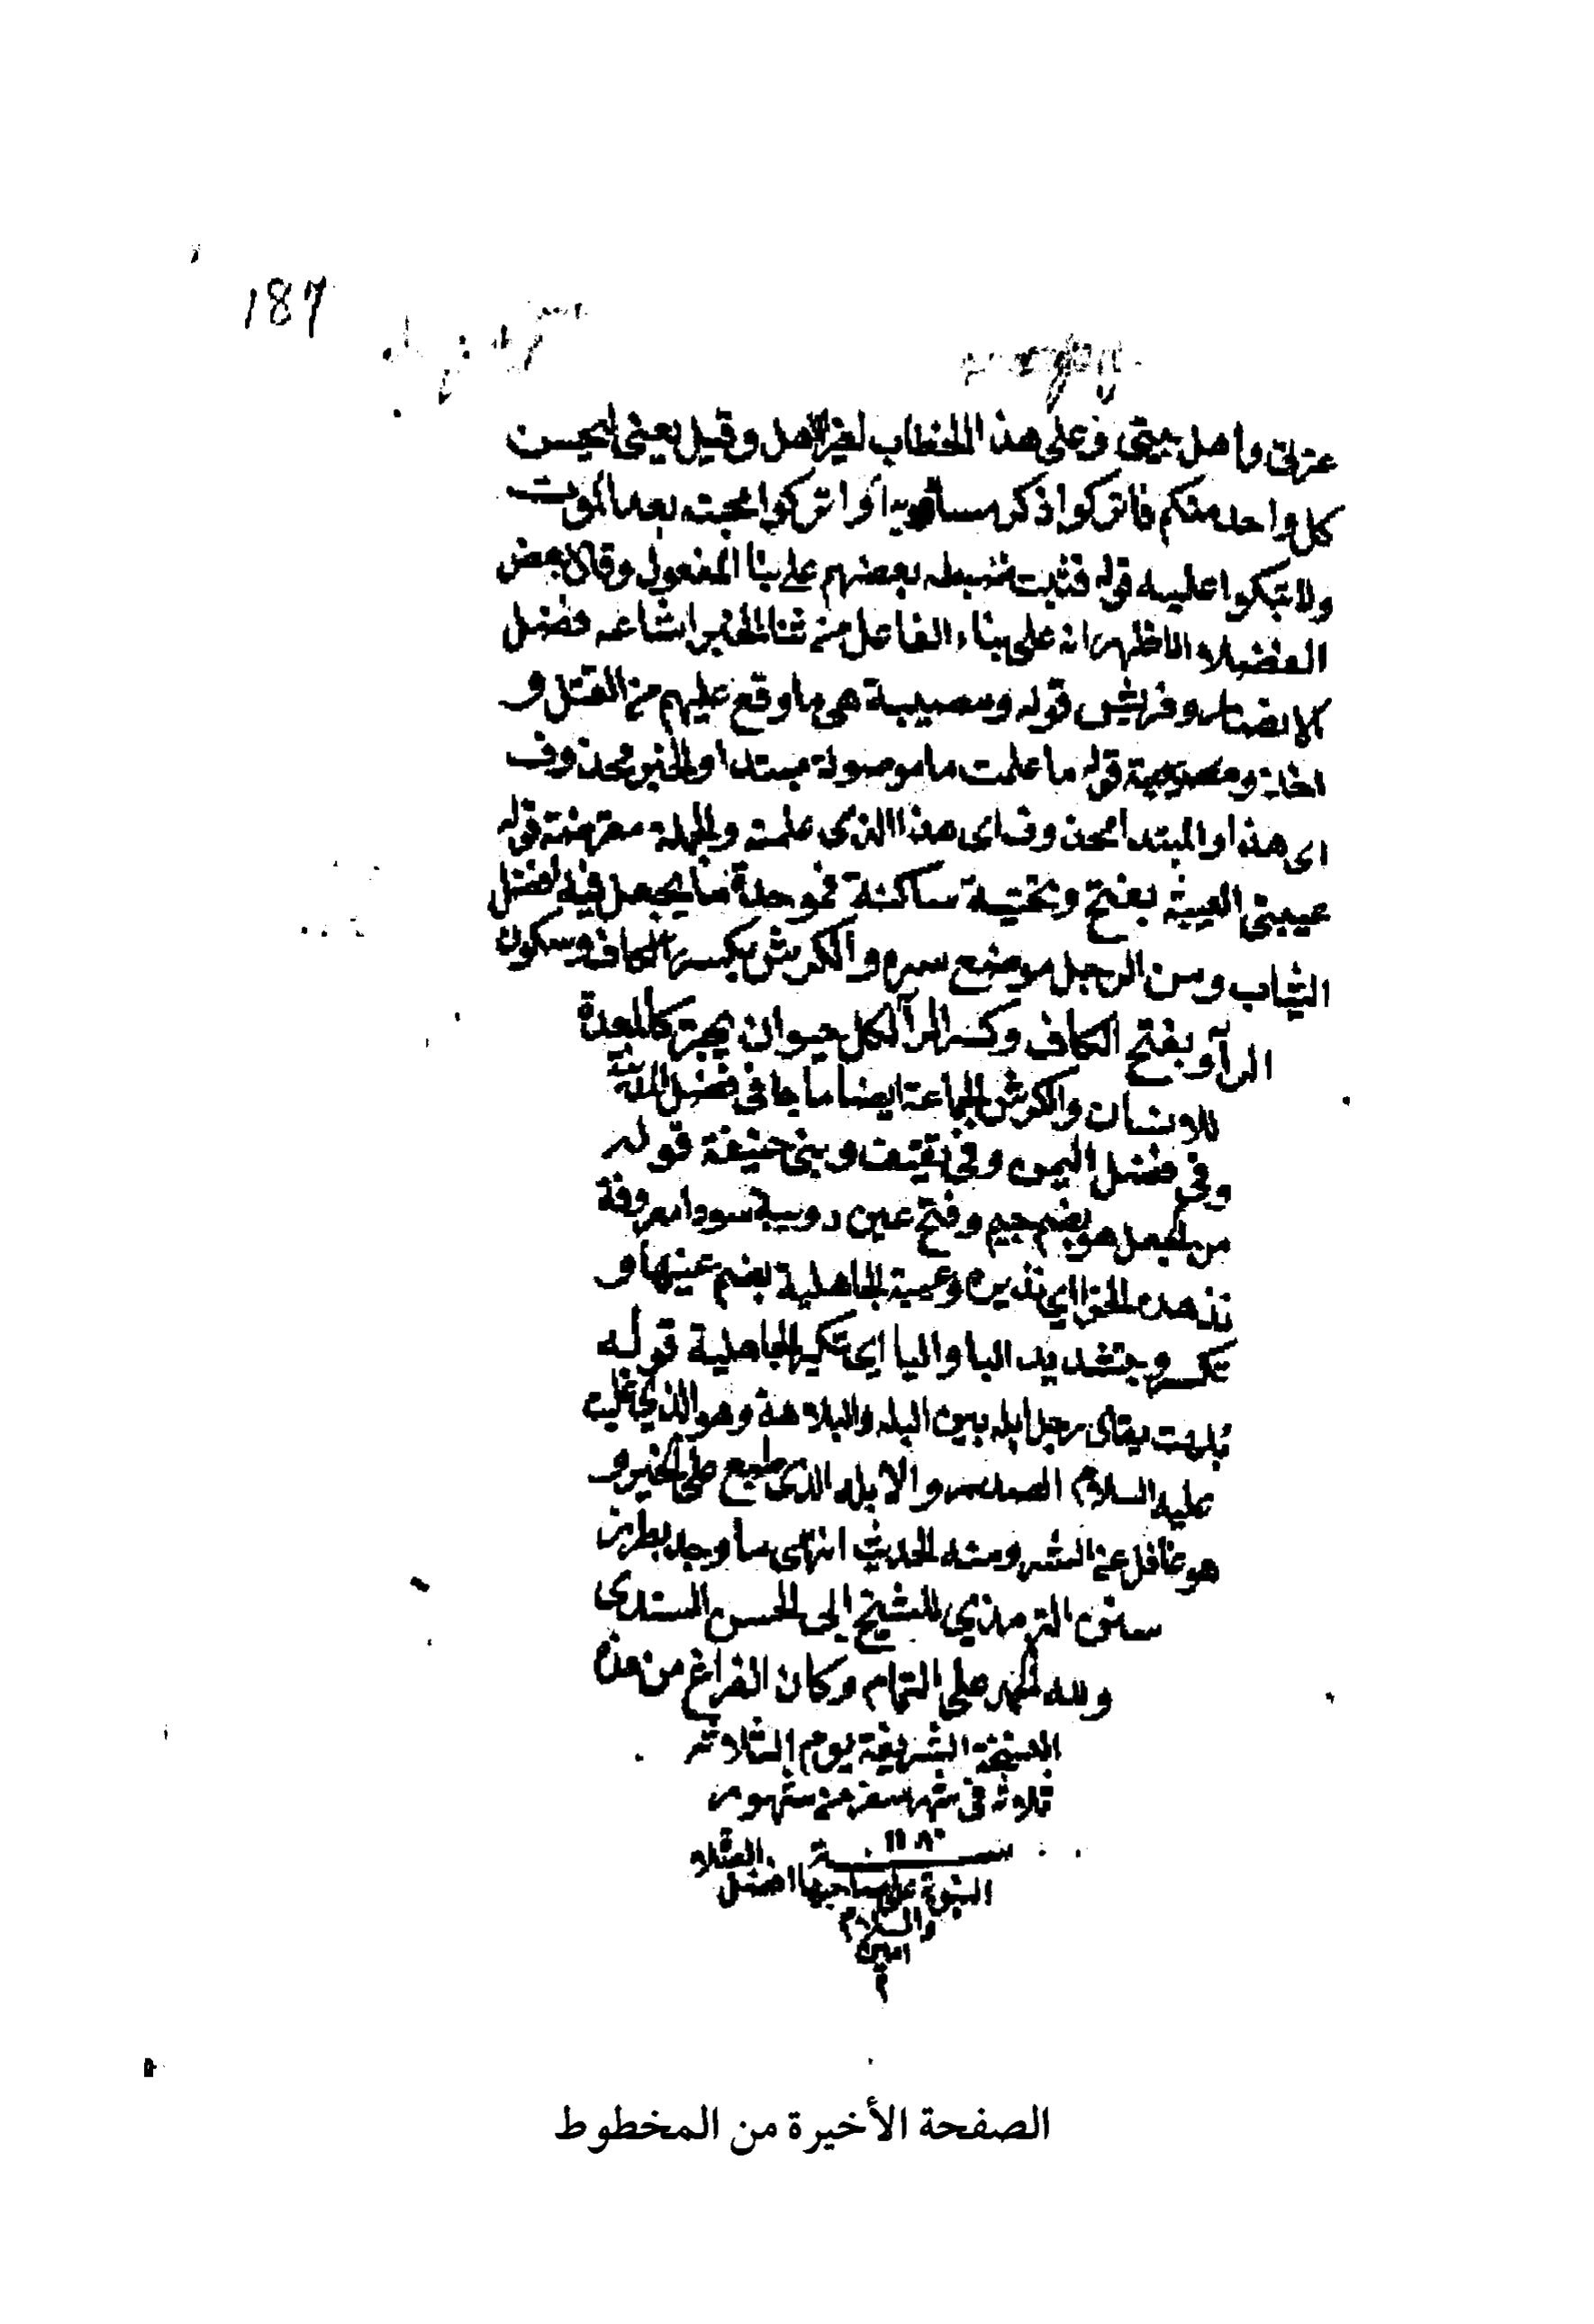 187
عترتي واهل بيتي وعلى هذا الخطاب لغير الاهل وقيل يعني ليحسن
كل واحد منكم فاتركوا ذكر مساويه او اتركوا محبته بعد الموت
ولا تبكوا عليه قوله فنثيت ضبطه بعضهم على بنا المفعول وقال بعض
الفضلاء الاظهر انه على بناء الفاعل من نثا الخبر اشاعه فضل
الانصار وقريش قوله ومصيبة هي ما وقع عليهم من القتل و
قوله ما علمت ما موصولة مبتدا والخبر محذوف
اى هذا والمبتدا محذوف اى هذا الذى علمته والجملة معترضة قوله
عيبتي العيبة بفتح وتحتية ساكنة فموحدة ما يجعل فيه افضل
الثياب ومن الرجل موضع سره والكرش بكسر الكاف وسكون
الرآ وبفتح الكاف وكسر الرآ لكل حيوان يجتر كالمعدة
للانسان والكرش الجماعة ايضا ما جا في فضل المدينة
وفي فضل اليمن وفي ثقيف وبني حنيفة قوله
من الجعل هو بضم جيم وفتح عين دويبة سودا معروفة
تدهده الخرا اي تديره وعبية الجاهلية بضم عينها و
تكسر وبتشديد البا واليا اي تكبر الجاهلية قوله
بلهت يقال رجل ابله بين البله والبلاهة وهو الذي غلبت
عليه السلامة الصدر والابله الذى طبع على الخير و
هو غافل عن الشر ومنه الحديث انتهى ما وجد بطرز
سنن الترمذي للشيخ ابى الحسن السندى
ولله الحمد على التمام وكان الفراغ من هذه
النسخة الشريفة يوم الثلاثه
ثلاثة في شهر سفر من شهور
سنة ١١٨٠
النبوة على صاحبها افضل الصلاة
والسلام
امين
م
الصفحة الأخيرة من المخطوط